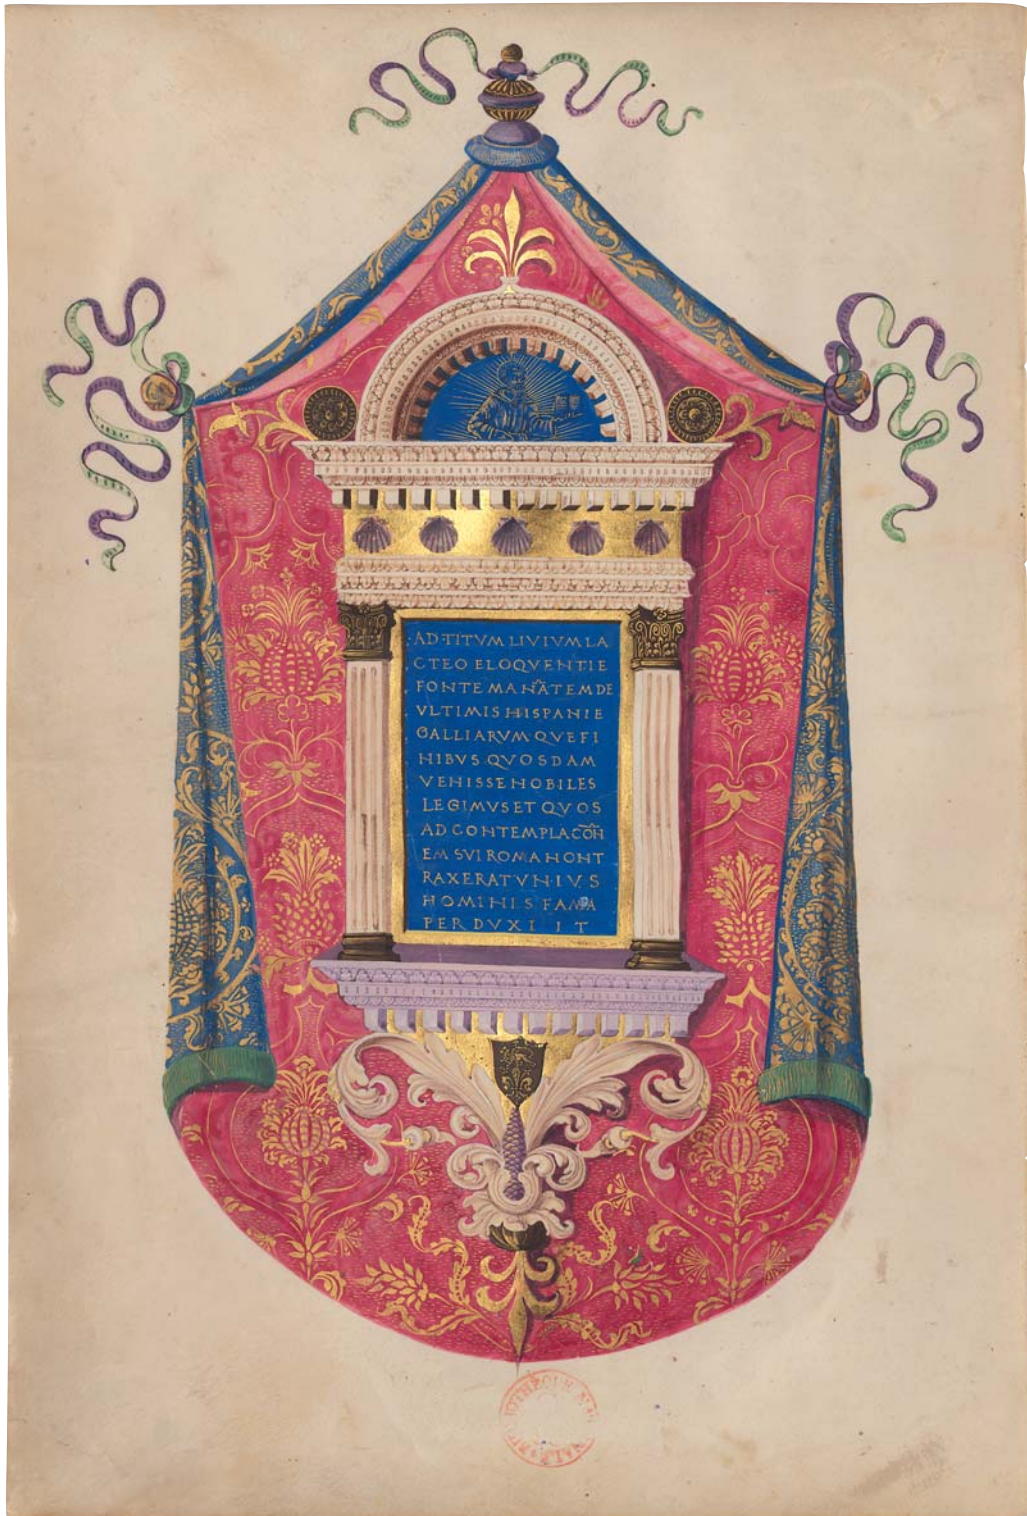 AD·TITVM LIVIVM LA
CTEO ELOQVENTIE
FONTE MAN̄ATEM DE
VLTIMIS HISPANIE
GALLIARVM QVE FI
NIBVS QVOSDAM
VENISSE NOBILES
LEGIMVS ET QVOS
AD CONTEMPLACŌN
EM SVI ROMA NON T
RAXERAT VNIVS
HOMINIS FAMA
PERDVXI IT